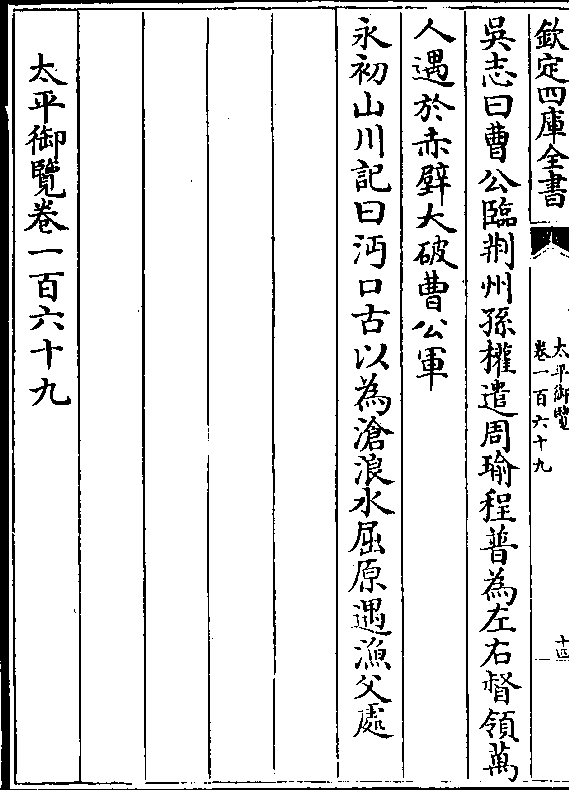 欽定四庫全書
太平御覽
卷一百六十九
十四
吳志曰曹公臨荆州孫權遣周瑜程普為左右督領萬
人遇於赤壁大破曹公軍
永初山川記曰沔口古以為滄浪水屈原遇漁父處
太平御覽卷一百六十九